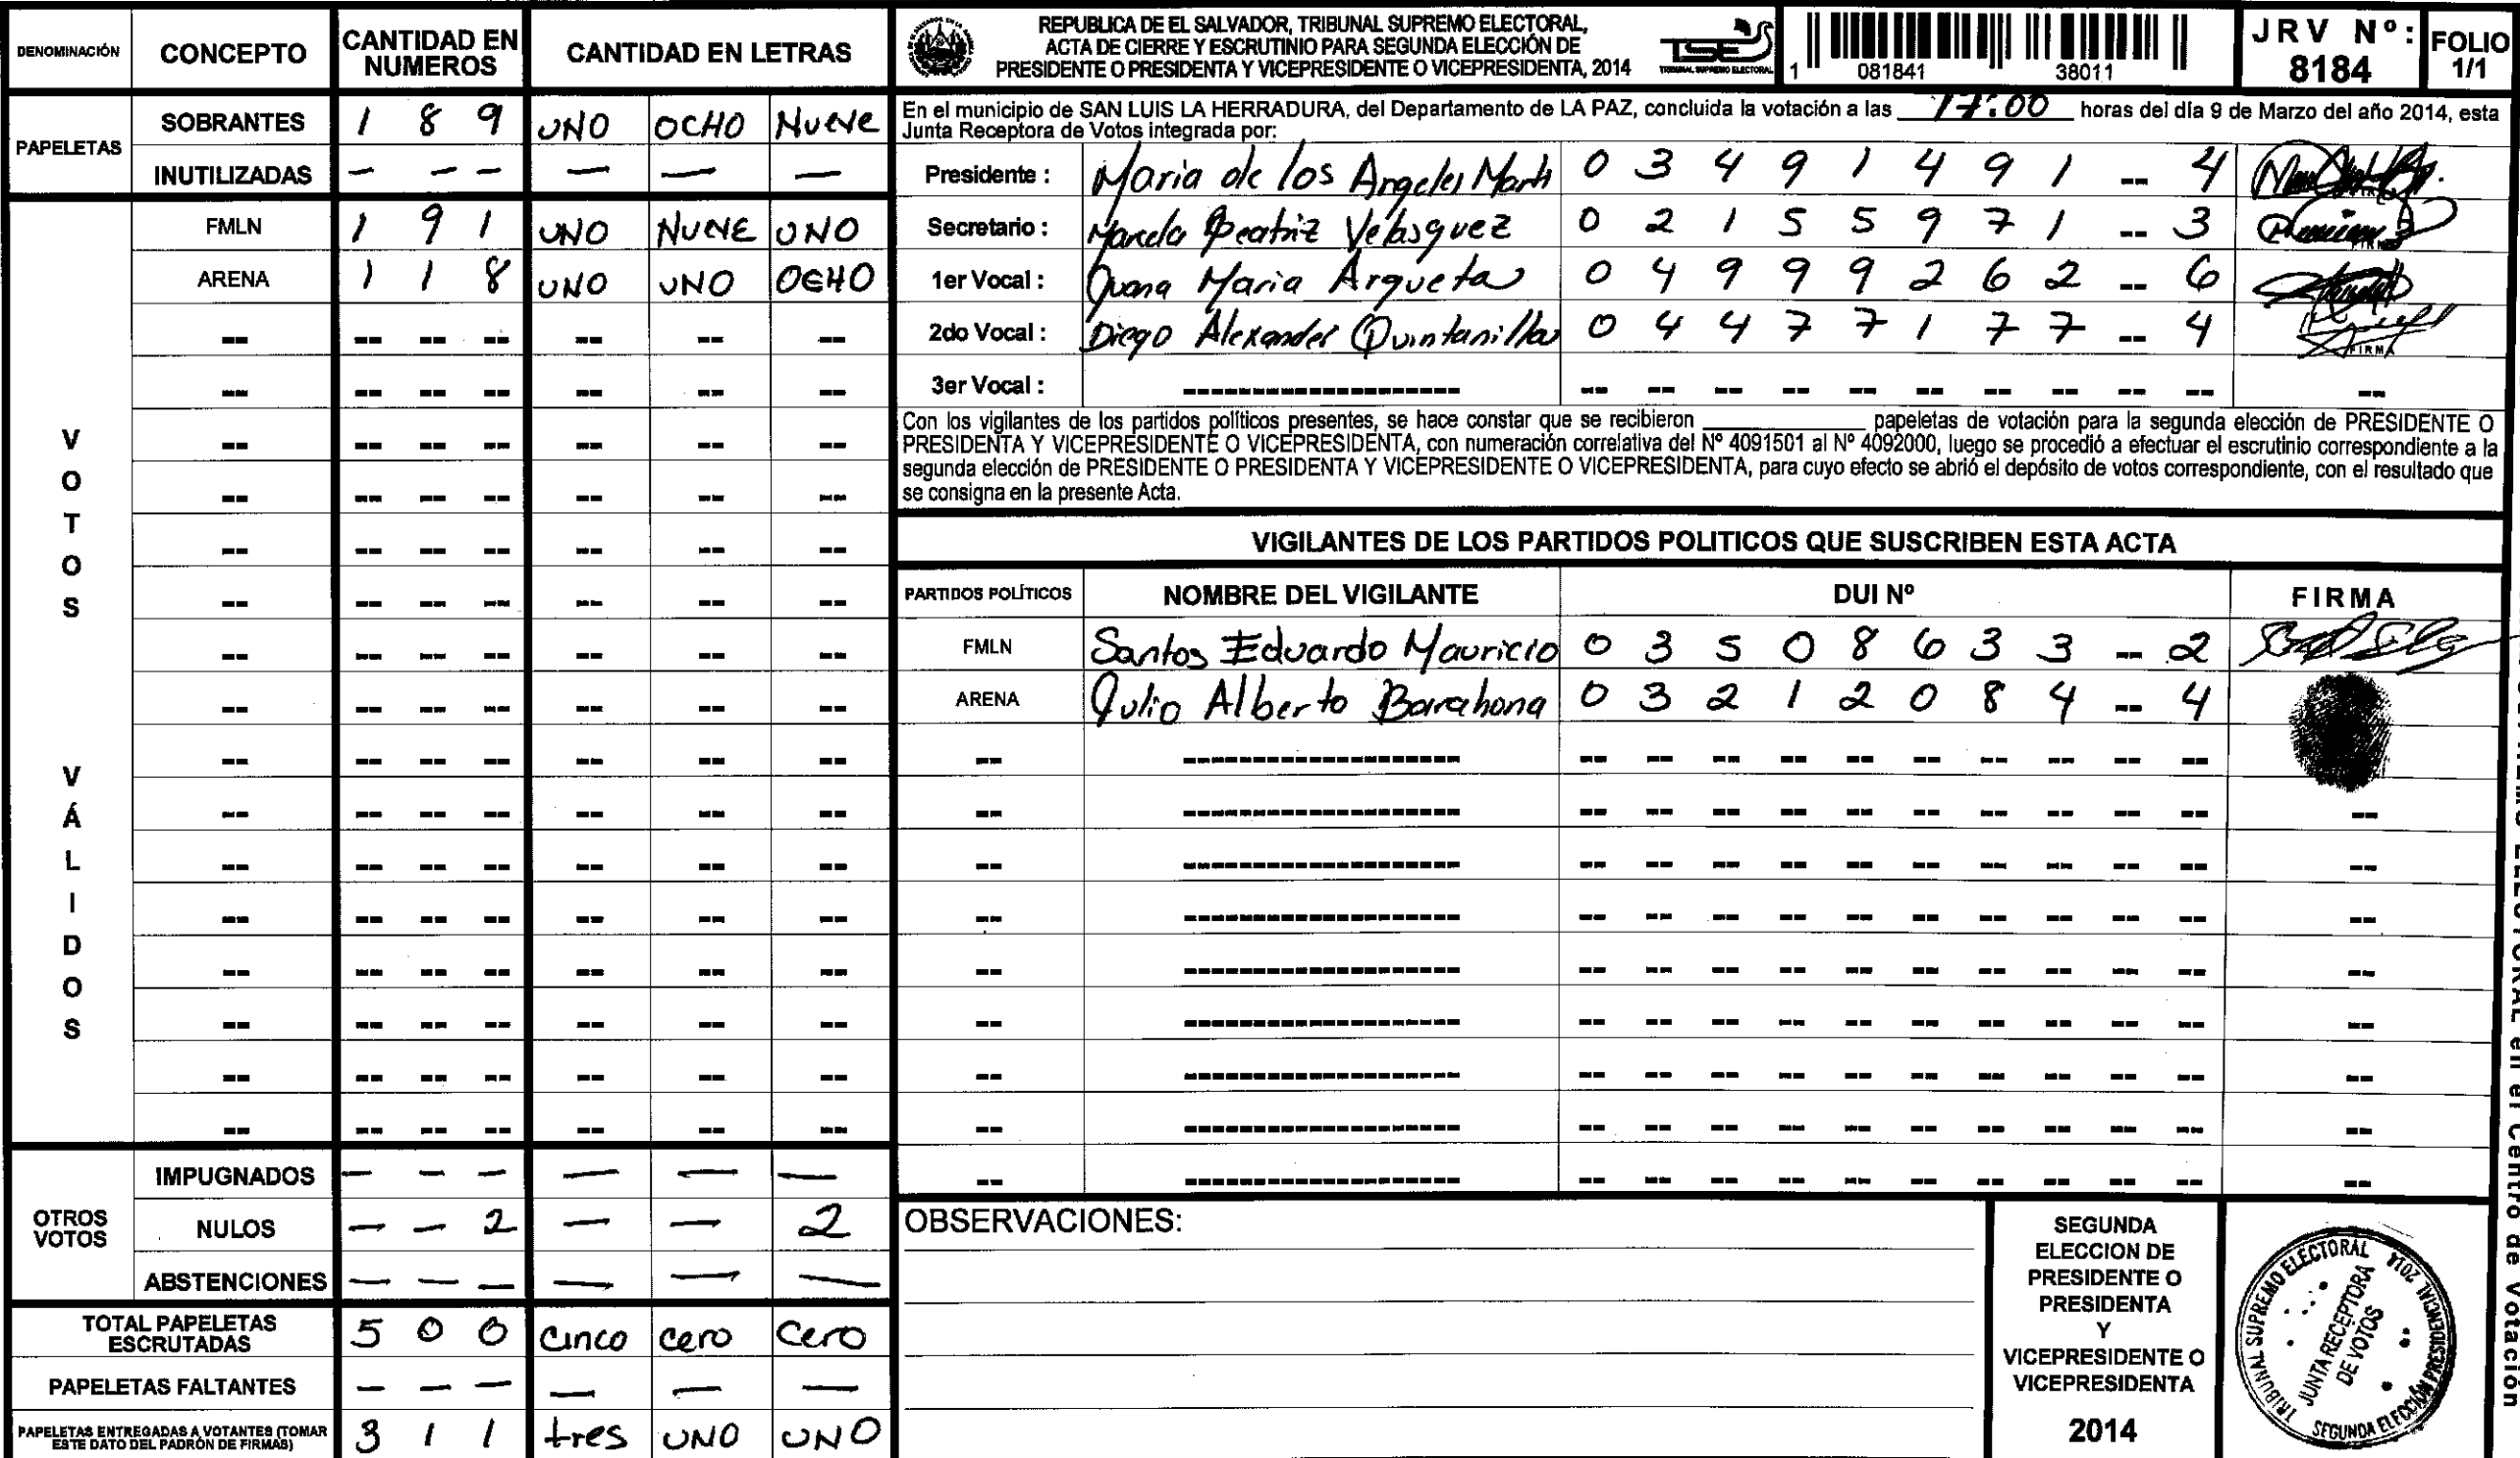 DENOMINACIÓN CONCEPTO CANTIDAD EN NUMEROS CANTIDAD EN LETRAS
PAPELETAS
SOBRANTES 1 8 9 UNO OCHO NUEVE
INUTILIZADAS — — — — — —
VOTOS VÁLIDOS
FMLN 1 9 1 UNO NUEVE UNO
ARENA 1 1 8 UNO UNO OCHO
OTROS VOTOS
IMPUGNADOS — — — — — —
NULOS — — 2 — — 2
ABSTENCIONES — — — — — —
TOTAL PAPELETAS ESCRUTADAS 5 0 0 Cinco cero Cero
PAPELETAS FALTANTES — — — — — —
PAPELETAS ENTREGADAS A VOTANTES (TOMAR ESTE DATO DEL PADRÓN DE FIRMAS) 3 1 1 tres UNO UNO
REPUBLICA DE EL SALVADOR, TRIBUNAL SUPREMO ELECTORAL,
ACTA DE CIERRE Y ESCRUTINIO PARA SEGUNDA ELECCIÓN DE
PRESIDENTE O PRESIDENTA Y VICEPRESIDENTE O VICEPRESIDENTA, 2014
TSE
TRIBUNAL SUPREMO ELECTORAL
1 081841 38011
JRV Nº: 8184
FOLIO 1/1
En el municipio de SAN LUIS LA HERRADURA, del Departamento de LA PAZ, concluida la votación a las 17:00 horas del día 9 de Marzo del año 2014, esta
Junta Receptora de Votos integrada por:
Presidente : Maria de los Angeles Marti 0 3 4 9 1 4 9 1 -- 4
Secretario : Marcela Beatriz Velasquez 0 2 1 5 5 9 7 1 -- 3
1er Vocal : Juana Maria Argueta 0 4 9 9 9 2 6 2 -- 6
2do Vocal : Diego Alexander Quintanilla 0 4 4 7 7 1 7 7 -- 4 FIRMA
3er Vocal : --
Con los vigilantes de los partidos políticos presentes, se hace constar que se recibieron ________ papeletas de votación para la segunda elección de PRESIDENTE O
PRESIDENTA Y VICEPRESIDENTE O VICEPRESIDENTA, con numeración correlativa del Nº 4091501 al Nº 4092000, luego se procedió a efectuar el escrutinio correspondiente a la
segunda elección de PRESIDENTE O PRESIDENTA Y VICEPRESIDENTE O VICEPRESIDENTA, para cuyo efecto se abrió el depósito de votos correspondiente, con el resultado que
se consigna en la presente Acta.
VIGILANTES DE LOS PARTIDOS POLITICOS QUE SUSCRIBEN ESTA ACTA
PARTIDOS POLÍTICOS NOMBRE DEL VIGILANTE DUI Nº FIRMA
FMLN Santos Eduardo Mauricio 0 3 5 0 8 6 3 3 -- 2
ARENA Julio Alberto Barahona 0 3 2 1 2 0 8 4 -- 4
OBSERVACIONES:
SEGUNDA
ELECCION DE
PRESIDENTE O
PRESIDENTA
Y
VICEPRESIDENTE O
VICEPRESIDENTA
2014
TRIBUNAL SUPREMO ELECTORAL
JUNTA RECEPTORA
DE VOTOS
SEGUNDA ELECCIÓN PRESIDENCIAL 2014
ELECTORAL en el Centro de Votación